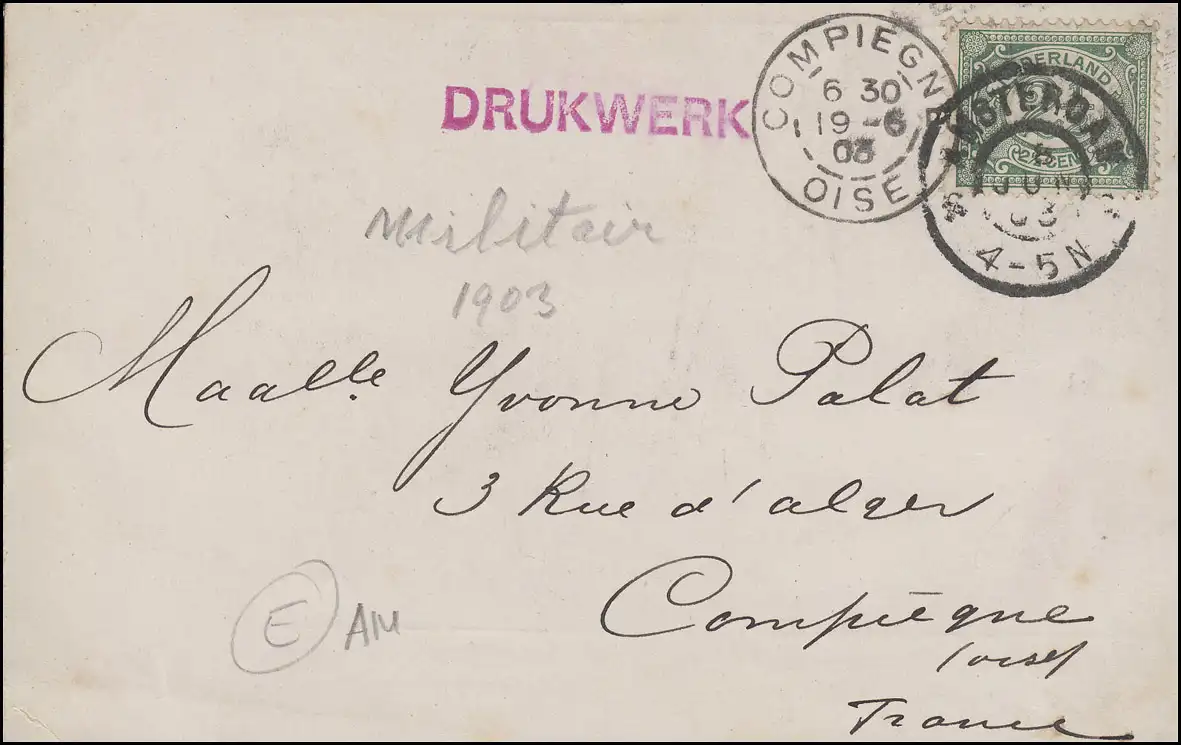 DRUKWERK
COMPIEGNE
6 30
19 - 6
03
OISE
NEDERLAND
2½ CENT
AMSTERDAM
JUN
03
4-5N
Militair
1903
Maalle Yvonne Palat
3 Rue d'alger
Compiègne
(oise)
France
E AM